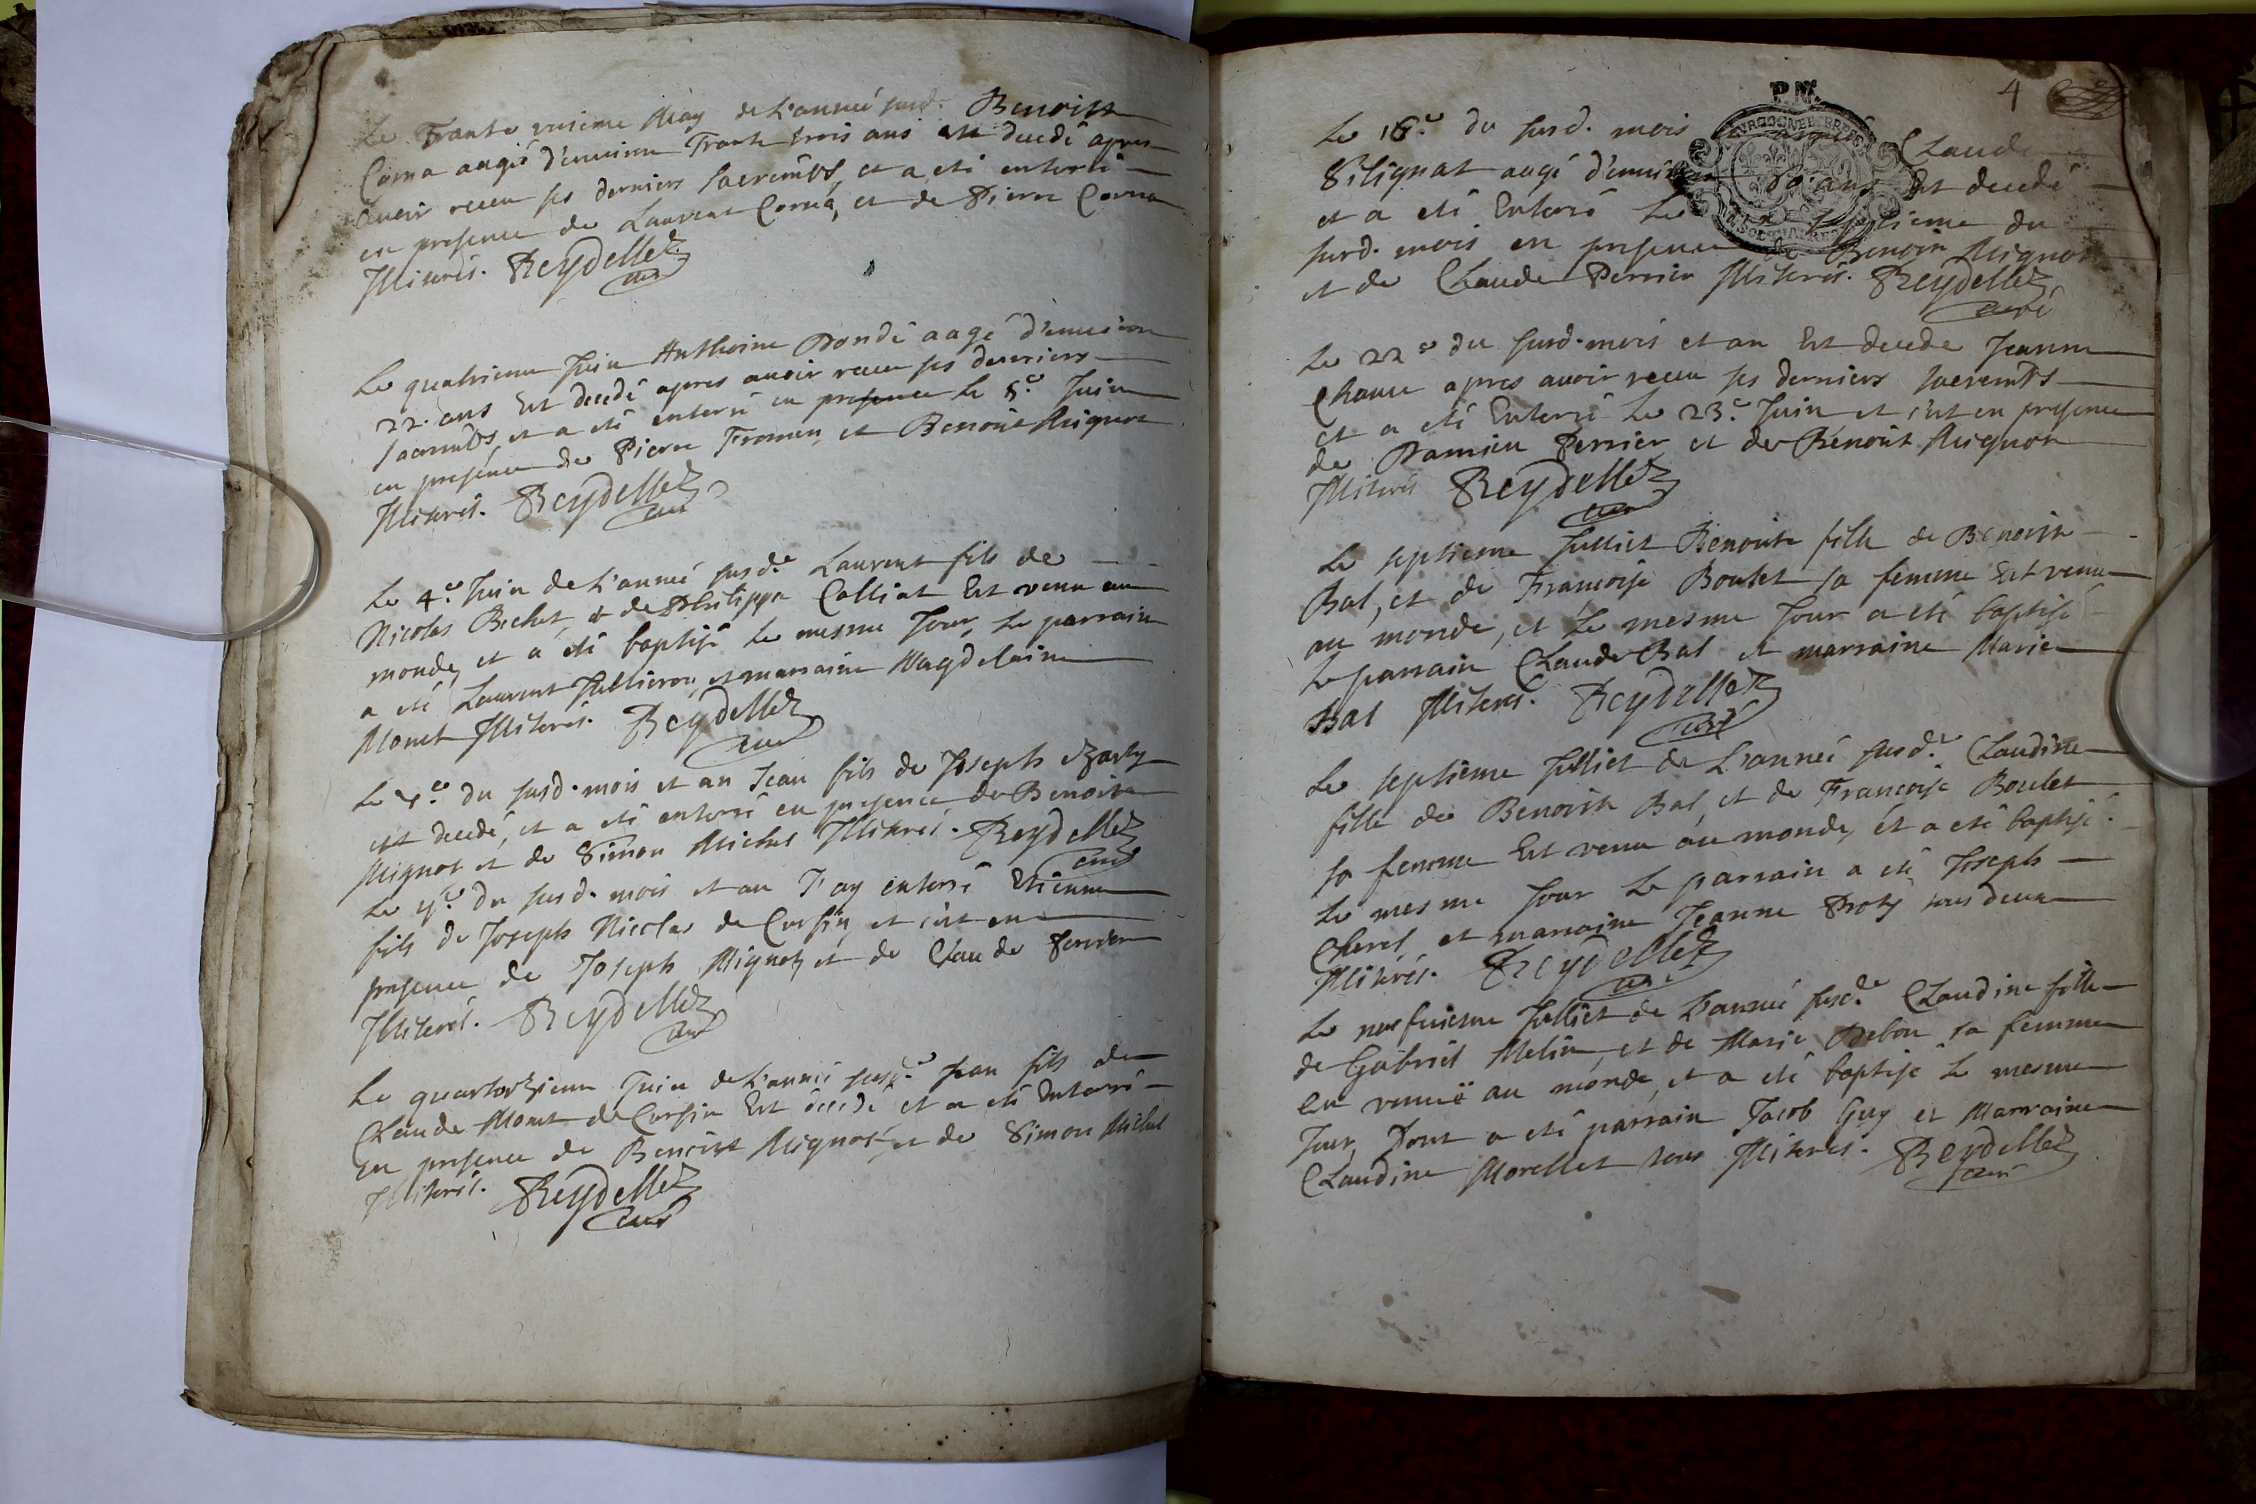 Le Trante unieme May de L'année susd. Benoist
Corna aagé d'environ Trante trois ans est decedé apres
avoir receu ses derniers sacremts, et a eté enterré
en presence de Laurent Corna, et de Pierre Corna
Illiterés. Reydellet
curé
Le quatrieme Juin Anthoine Dondé aagé d'environ
22. ans Est decedé apres avoir receu ses derniers
sacremts, et a eté enterré en presence Le 5.e Juin
en presence de Pierre Fromen, et Benoist Mignot
Illiterés. Reydellet
curé
Le 4.e Juin de L'année susd.e Laurent fils de
Nicolas Bechet, & de Philippa Colliat Est venu au
monde, et a eté baptisé le mesme Jour, Le parrain
a eté Laurent et marraine Magdelaine
Monet Illiterés. Reydellet
curé
Le du susd. mois et an Jean fils de Joseph
est decedé, et a eté enterré en presence de Benoist
Mignot et de Simon Michel Illiterés. Reydellet
curé
Le 9.e du susd. mois et an J'ay enterré Etienne
fils de Joseph Nicolas de Cursin, et c'est en
presence de Joseph Mignot, et de Claude
Illiterés. Reydellet
curé
Le quartorzieme Juin de L'année susd.e Jean fils de
Claude Monet de Cursin Est decedé et a eté Enterré
En presence de Benoist Mignot, et de Simon Michel
Illiterés. Reydellet
curé
4
Le 16.e du susd. mois Claude
Silignat aagé d'environ ans Est decedé
et a eté Enterré Le du
susd. mois en presence de Benoin Mignot
et de Claude Perrier Illiterés. Reydellet
curé
Le 22.e du susd. mois et an Est decede Jeanne
Chanu apres avoir receu ses derniers sacremts
et a eté Enterré Le 23.e Juin et c'est en presence
de Damien Perrier et de Benoist Mignot
Illiterés Reydellet
curé
Le septieme Julliet Benoite fille de Benoist
Bal, et de Francoise Boulet sa femme Est venu
au monde, et Le mesme Jour a eté baptisé
Le parrain Claude Bal et marraine Marie
Bal Illiterés. Reydellet
curé
Le septieme Julliet de L'année susd.e Claudine
fille de Benoist Bal, et de Francoise Boulet
sa femme Est venu au monde, et a eté baptisé
Le mesme Jour Le parrain a eté Joseph
Cherel, et marraine Jeanne tous deux
Illiterés. Reydellet
curé
Le neufvieme Julliet de L'année susd.e Claudine fille
de Gabriel Melin, et de Marie Debon sa femme
Est venuë au monde, et a eté baptisé Le mesme
Jour, Dont a eté parrain Jacob Guy et Marraine
Claudine Morellet tous Illiterés. Reydellet
curé